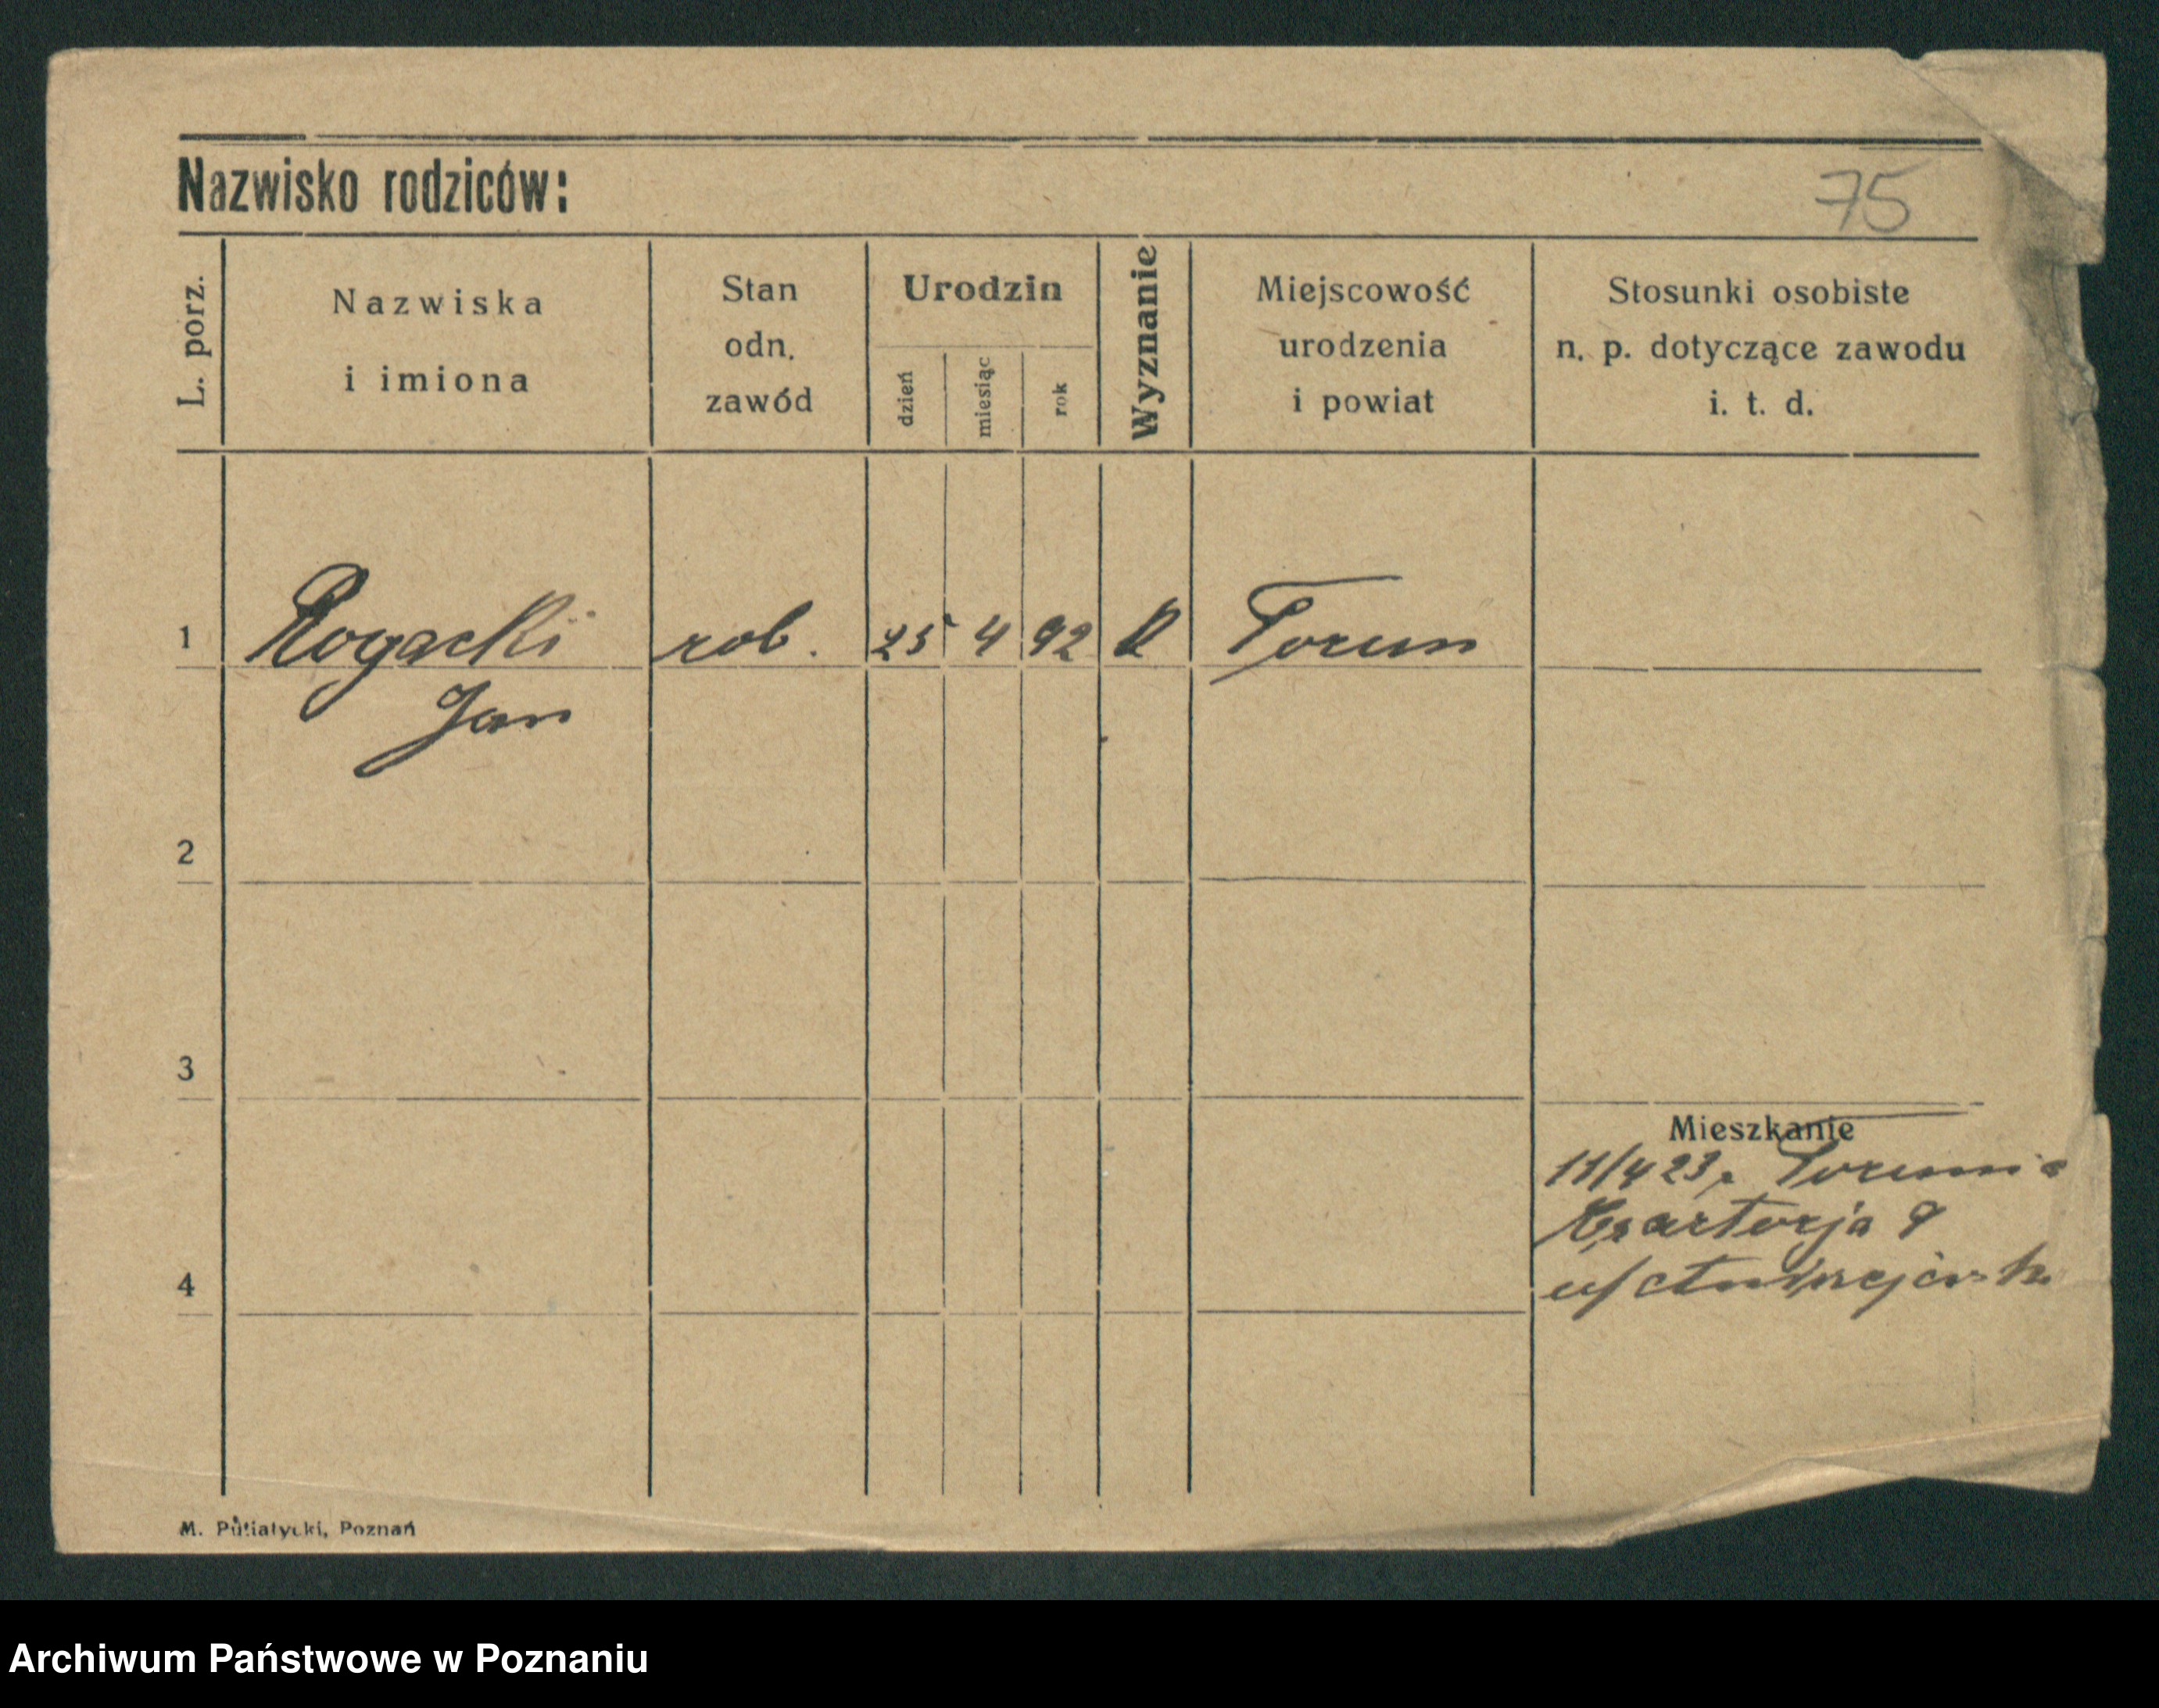 Nazwisko rodziców:
75
L. porz.
Nazwiska
i imiona
Stan
odn.
zawód
Urodzin
dzień
miesiąc
rok
Wyznanie
Miejscowość
urodzenia
i powiat
Stosunki osobiste
n. p. dotyczące zawodu
i. t. d.
1 Rogacki rob. 25 4 92 k Torun
Jan
2
3
Mieszkanie
11/4 23 z Torunia
9
4
u/
M. Poznań
Archiwum Państwowe w Poznaniu